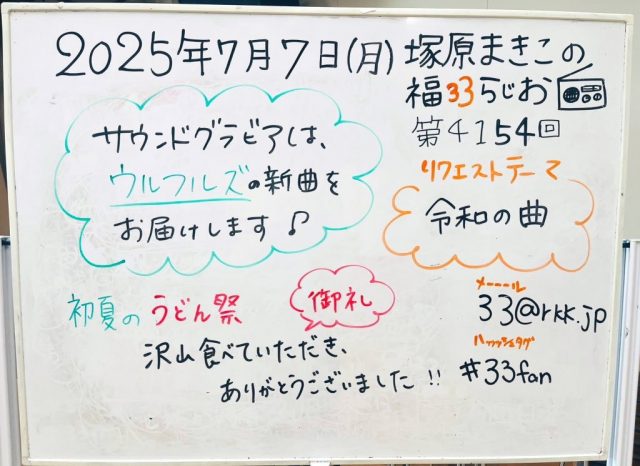 2025年7月7日(月) 塚原まきこの
福33らじお
第4154回
サウンドグラビアは、
ウルフルズの新曲を
お届けします♪
リクエストテーマ
令和の曲
初夏のうどん祭
御礼
沢山食べていただき、
ありがとうございました!!
メーーール
33@rkk.jp
ハッッシュタグ
#33fan